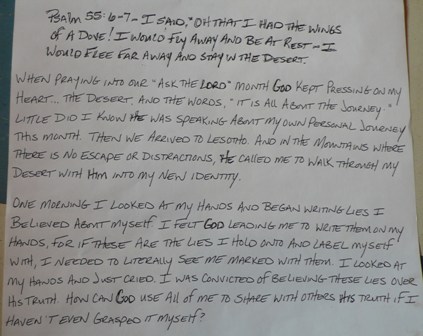 Psalm 55:6-7 - I SAID, "OH THAT I HAD THE WINGS
OF A DOVE! I WOULD FLY AWAY AND BE AT REST - I
WOULD FLEE FAR AWAY AND STAY IN THE DESERT.
WHEN PRAYING INTO OUR "ASK THE LORD" MONTH GOD KEPT PRESSING ON MY
HEART... THE DESERT, AND THE WORDS, "IT IS ALL ABOUT THE JOURNEY."
LITTLE DID I KNOW HE WAS SPEAKING ABOUT MY OWN PERSONAL JOURNEY
THIS MONTH. THEN WE ARRIVED TO LESOTHO. AND IN THE MOUNTAINS WHERE
THERE IS NO ESCAPE OR DISTRACTIONS, HE CALLED ME TO WALK THROUGH MY
DESERT WITH HIM INTO MY NEW IDENTITY.
ONE MORNING I LOOKED AT MY HANDS AND BEGAN WRITING LIES I
BELIEVED ABOUT MYSELF. I FELT GOD LEADING ME TO WRITE THEM ON MY
HANDS, FOR IF THESE ARE THE LIES I HOLD ONTO AND LABEL MYSELF
WITH, I NEEDED TO LITERALLY SEE ME MARKED WITH THEM. I LOOKED AT
MY HANDS AND JUST CRIED. I WAS CONVICTED OF BELIEVING THESE LIES OVER
HIS TRUTH. HOW CAN GOD USE ALL OF ME TO SHARE WITH OTHERS HIS TRUTH IF I
HAVEN'T EVEN GRASPED IT MYSELF?